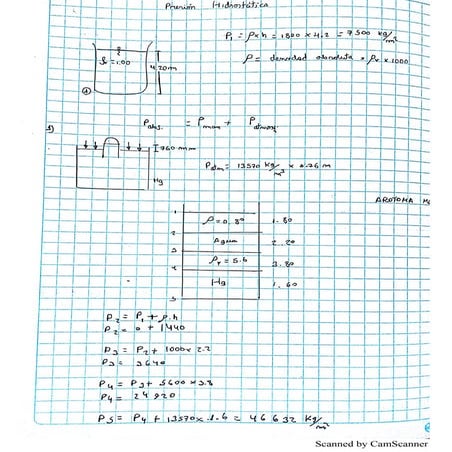 Presión Hidrostática
P₁ = ρxh = 1800 x 4.2 = 7500 kg/m²
Sr = 1.00
4.20m
ρ = densidad absoluta = ρr x 1000
Pabs. = Pman + Patmos
760 mm
Patm = 13570 kg/m³ x 0.76 m
Hg
AROTOMA
1
ρ = 0.80
1.80
2
Agua
2.20
3
ρr = 5.6
3.80
4
Hg
1.60
5
P2 = P1 + ρ.h
P2 = 0 + 1440
P3 = P2 + 1000x 2.2
P3 = 3640
P4 = P3 + 5600 x 3.8
P4 = 24 920
P5 = P4 + 13570 x 1.6 = 46 632 kg/m²
Scanned by CamScanner